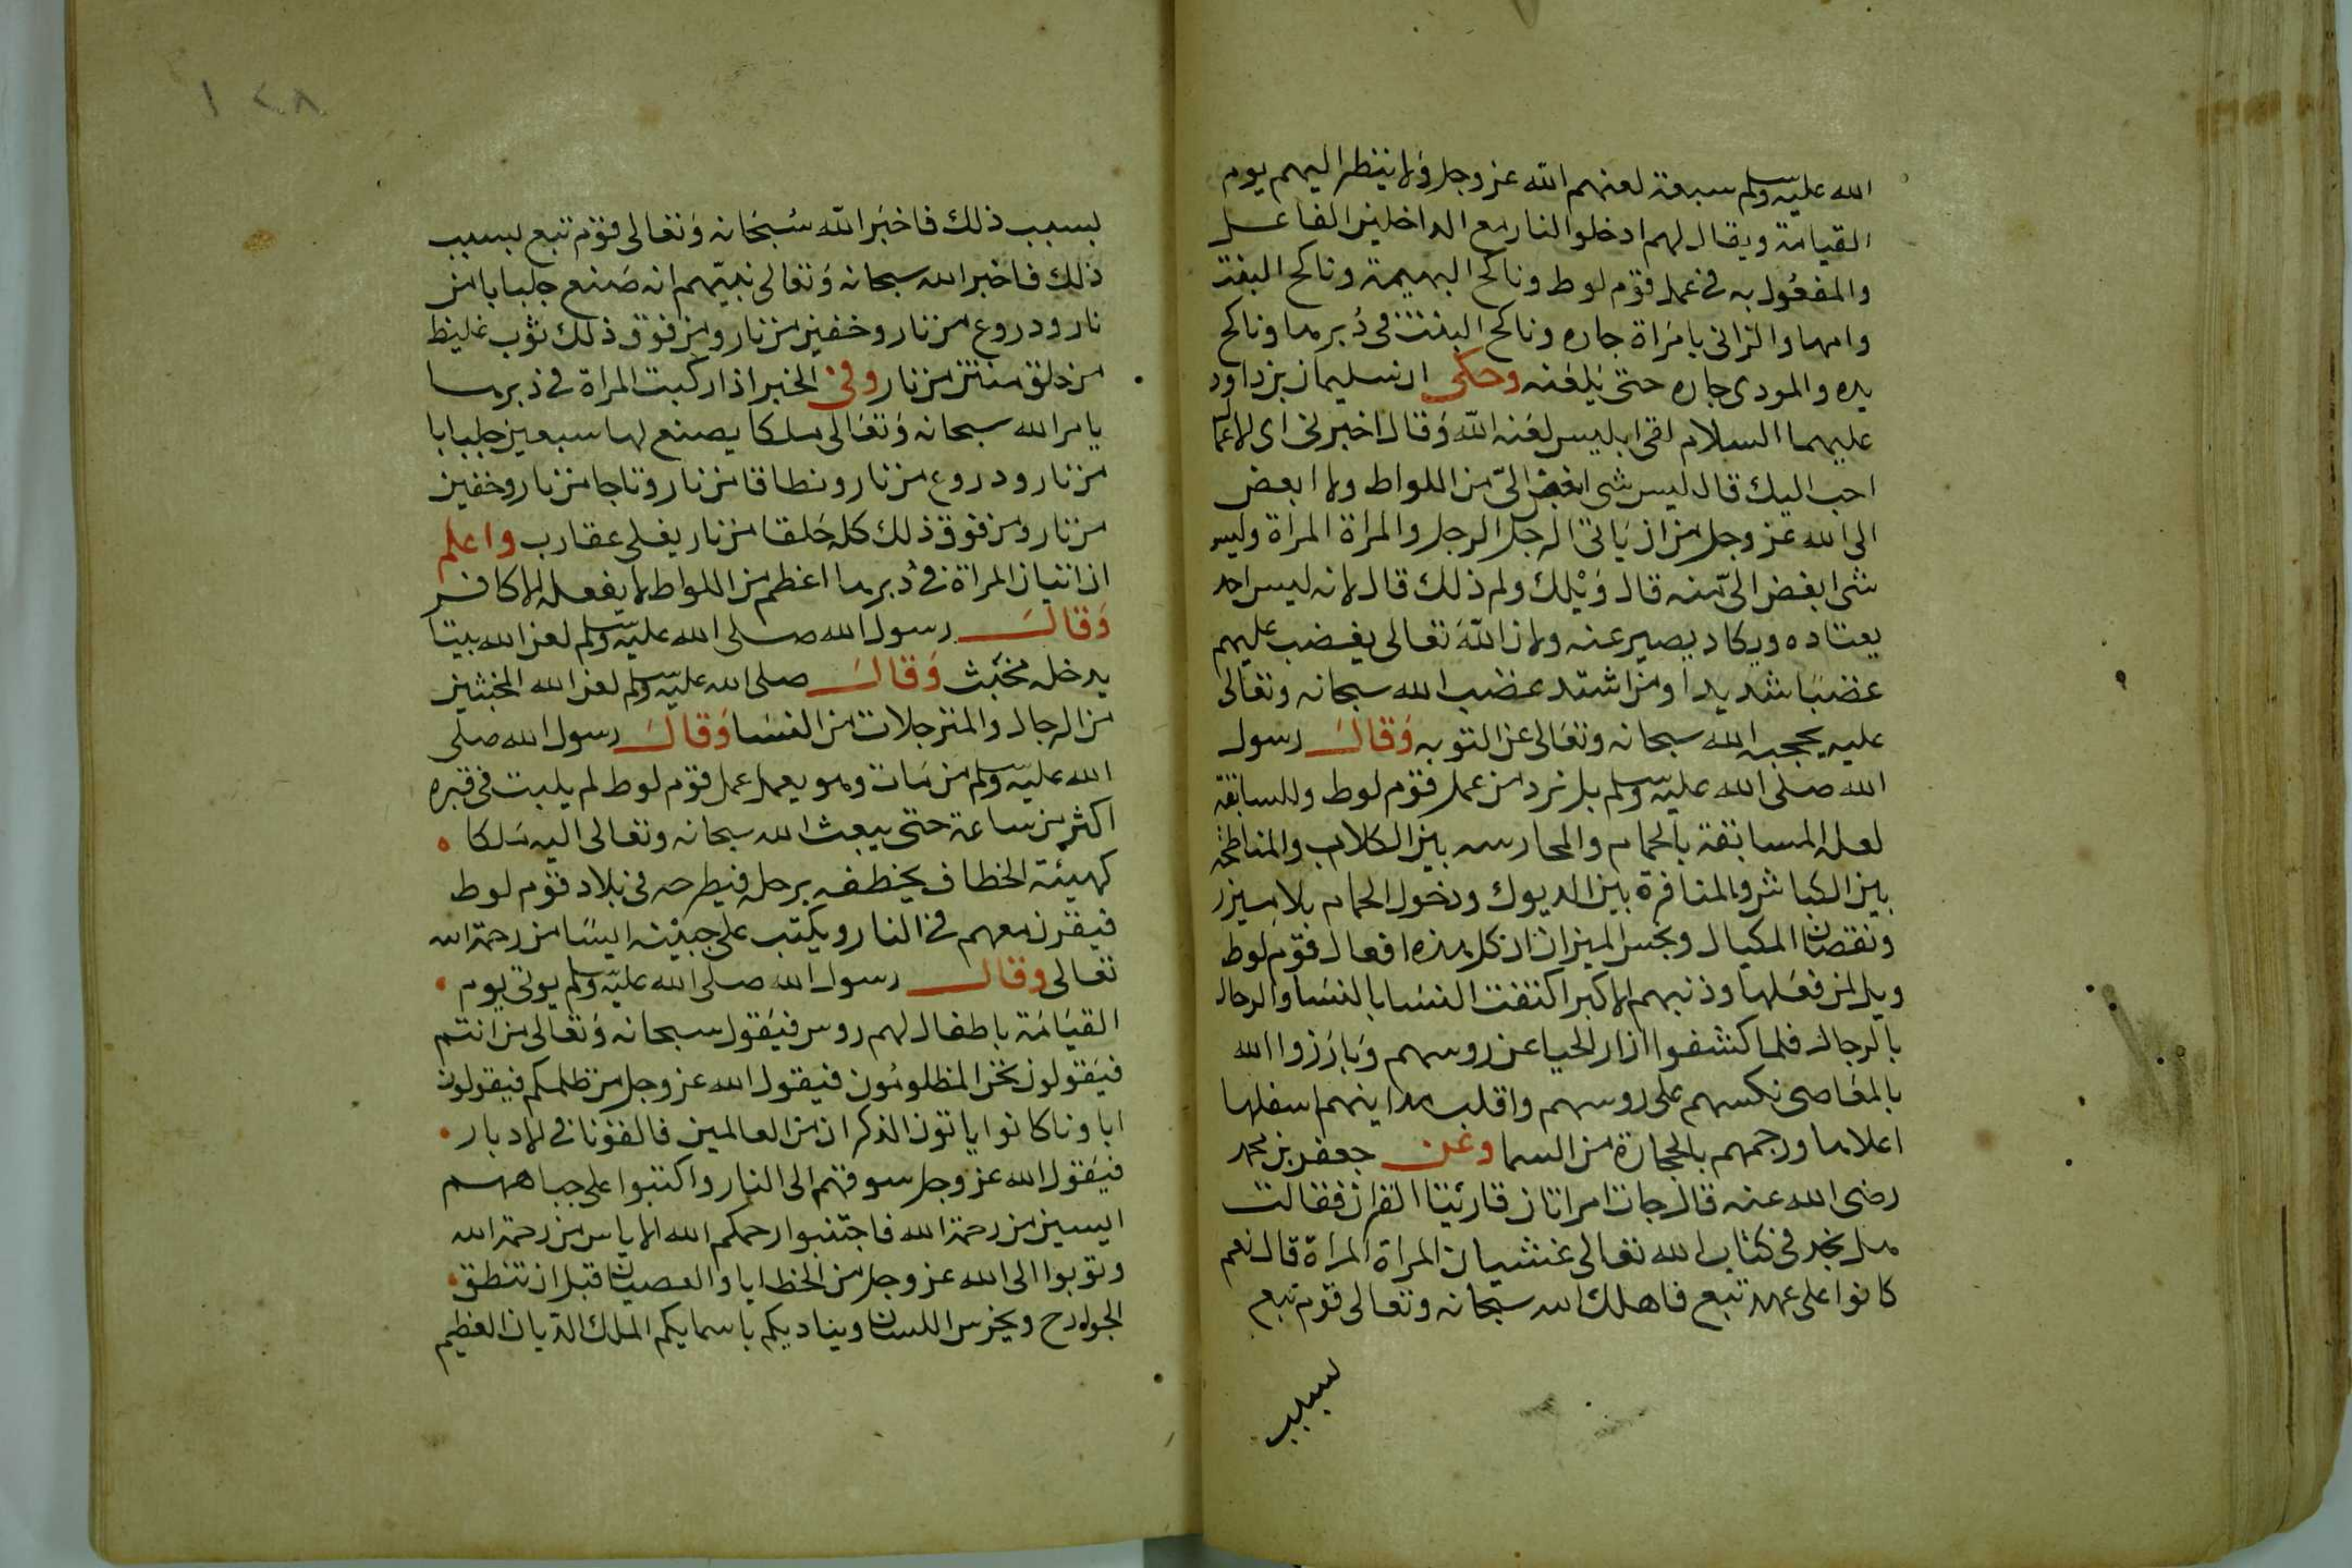 الله عليه وسلم سبعة لعنهم الله عز وجل ولا ينظر اليهم يوم
القيامة ويقال لهم ادخلوا النار مع الداخلين الفاعل
والمفعول به في عمل قوم لوط وناكح البهيمة وناكح البنت
وامها والزاني بامراة جاره وناكح البنت في دبرها وناكح
يده والموذى جاره حتى يلعنه وحكى ان سليمان بن داود
عليهما السلام لقى ابليس لعنه الله وقال اخبرني اى الاعمال
احب اليك قال ليس شى ابغض الىّ من اللواط ولا ابغض
الى الله عز وجل من ان ياتى الرجل الرجل والمراة المراة وليس
شى ابغض الىّ منه قال ويلك ولم ذلك قال لانه ليس احد
يعتاده ويكاد يصبر عنه ولان الله تعالى يغضب عليهم
غضبا شديدا ومن اشتد غضب الله سبحانه وتعالى
عليه يحجبه الله سبحانه وتعالى عن التوبه وقال رسول
الله صلى الله عليه وسلم بل نرد من عمل قوم لوط وللسابقة
لعله المسابقة بالحمام والمحارسه بين الكلاب والمناطحة
بين الكباش والمنافرة بين الديوك ودخول الحمام بلا ميزر
ونقصان المكيال وبخس الميزان ان كل هذه افعال قوم لوط
ويل لمن فعلها وذنبهم الاكبر اكتفت النسا بالنسا والرجال
بالرجال فلما كشفوا ازار الحيا عن روسهم وبارزوا الله
بالمعاصى نكسهم على روسهم واقلب مداينهم اسفلها
اعلاها ورجمهم بالحجارة من السما وعن جعفر بن محمد
رضى الله عنه قال جات امراتان قارئيتا القران فقالت
هل نجد في كتاب الله تعالى غشيان المراة المراة قال نعم
كانوا على عهد تبع فاهلك الله سبحانه وتعالى قوم تبع
لسبب
بسبب ذلك فاخبر الله سبحانه وتعالى قوم تبع بسبب
ذلك فاخبر الله سبحانه وتعالى نبيهم انه صنع جلبابا من
نار ودروع من نار وخفين من نار ومن فوق ذلك ثوب غليظ
من خلق منتن من نار وفى الخبر اذا ركبت المراة في دبرها
يامر الله سبحانه وتعالى ملكا يصنع لها سبعين جلبابا
من نار ودروع من نار ونطاقا من نار وتاجا من نار وخفين
من نار ومن فوق ذلك كله خلقا من نار يغلى عقارب واعلم
ان اتيان المراة في دبرها اعظم من اللواط لا يفعله الا كافر
وقال رسول الله صلى الله عليه وسلم لعن الله بيتا
يدخله مخنث وقال صلى الله عليه وسلم لعن الله المخنثين
من الرجال والمترجلات من النسا وقال رسول الله صلى
الله عليه وسلم من مات وهو يعمل عمل قوم لوط لم يلبث في قبره
اكثر من ساعة حتى يبعث الله سبحانه وتعالى اليه ملكا
كهيئة الخطاف يخطفه برجله فيطرحه في بلاد قوم لوط
فيقرن معهم في النار ويكتب على جبينه ايسا من رحمة الله
تعالى وقال رسول الله صلى الله عليه وسلم يوتى يوم
القيامة باطفال لهم روس فيقول سبحانه وتعالى من انتم
فيقولون نحن المظلومون فيقول الله عز وجل من ظلمكم فيقولون
اباونا كانوا ياتون الذكران من العالمين فالقونا في الادبار
فيقول الله عز وجل سوقهم الى النار واكتبوا على جباههم
ايسين من رحمة الله فاجتنبوا رحمكم الله الاياس من رحمة الله
وتوبوا الى الله عز وجل من الخطايا والعصيان قبل ان تنطق
الجوارح ويخرس اللسان ويناديكم باسمايكم الملك الديان العظيم
١٢٨